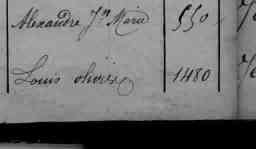 Alexandre Jn Marie 550
Louis olivier 1480